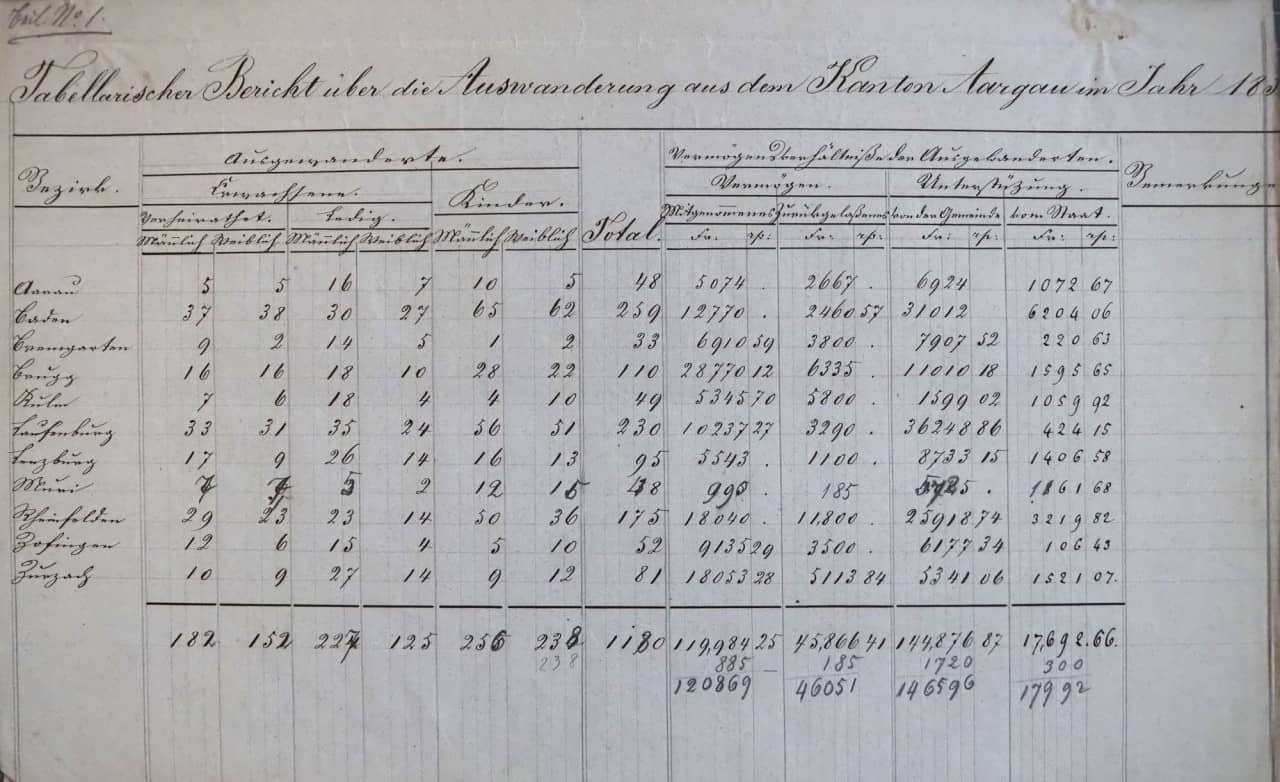 Beil. No. 1.
Tabellarischer Bericht über die Auswanderung aus dem Kanton Aargau im Jahr 18
Bezirk. Ausgewanderte. Total. Vermögensverhältniße der Ausgewanderten. Bemerkunge
Erwachsene. Kinder. Vermögen. Unterstüzung.
Verheirathet. Ledig. Mitgenommenes Zurükgelaßenes von der Gemeinde vom Staat.
Männlich Weiblich Männlich Weiblich Männlich Weiblich Fr: rp: Fr: rp: Fr: rp: Fr: rp:
Aarau 5 5 16 7 10 5 48 5074 . 2667 . 6924 1072 67
Baden 37 38 30 27 65 62 259 12770 . 2460 57 31012 6204 06
Bremgarten 9 2 14 5 1 2 33 6910 59 3800 . 7907 52 220 63
Brugg 16 16 18 10 28 22 110 28770 12 6335 . 11010 18 1595 65
Kulm 7 6 18 4 4 10 49 5345 70 5800 . 1599 02 1059 92
Laufenburg 33 31 35 24 56 51 230 10237 27 3290 . 36248 86 424 15
Lenzburg 17 9 26 14 16 13 95 5543 . 1100 . 8733 15 1406 58
Muri 7 7 5 2 12 15 48 995 . 185 . 1161 68
Rheinfelden 29 23 23 14 50 36 175 18040 . 11,800 . 25918 74 3219 82
Zofingen 12 6 15 4 5 10 52 9135 29 3500 . 6177 34 106 43
Zurzach 10 9 27 14 9 12 81 18053 28 5113 84 5341 06 1521 07.
182 152 227 125 256 238 1180 119,984 25 45,866 41 144,876 87 17,692.66.
238 885 — 185 1720 300
120869 46051 146596 17992